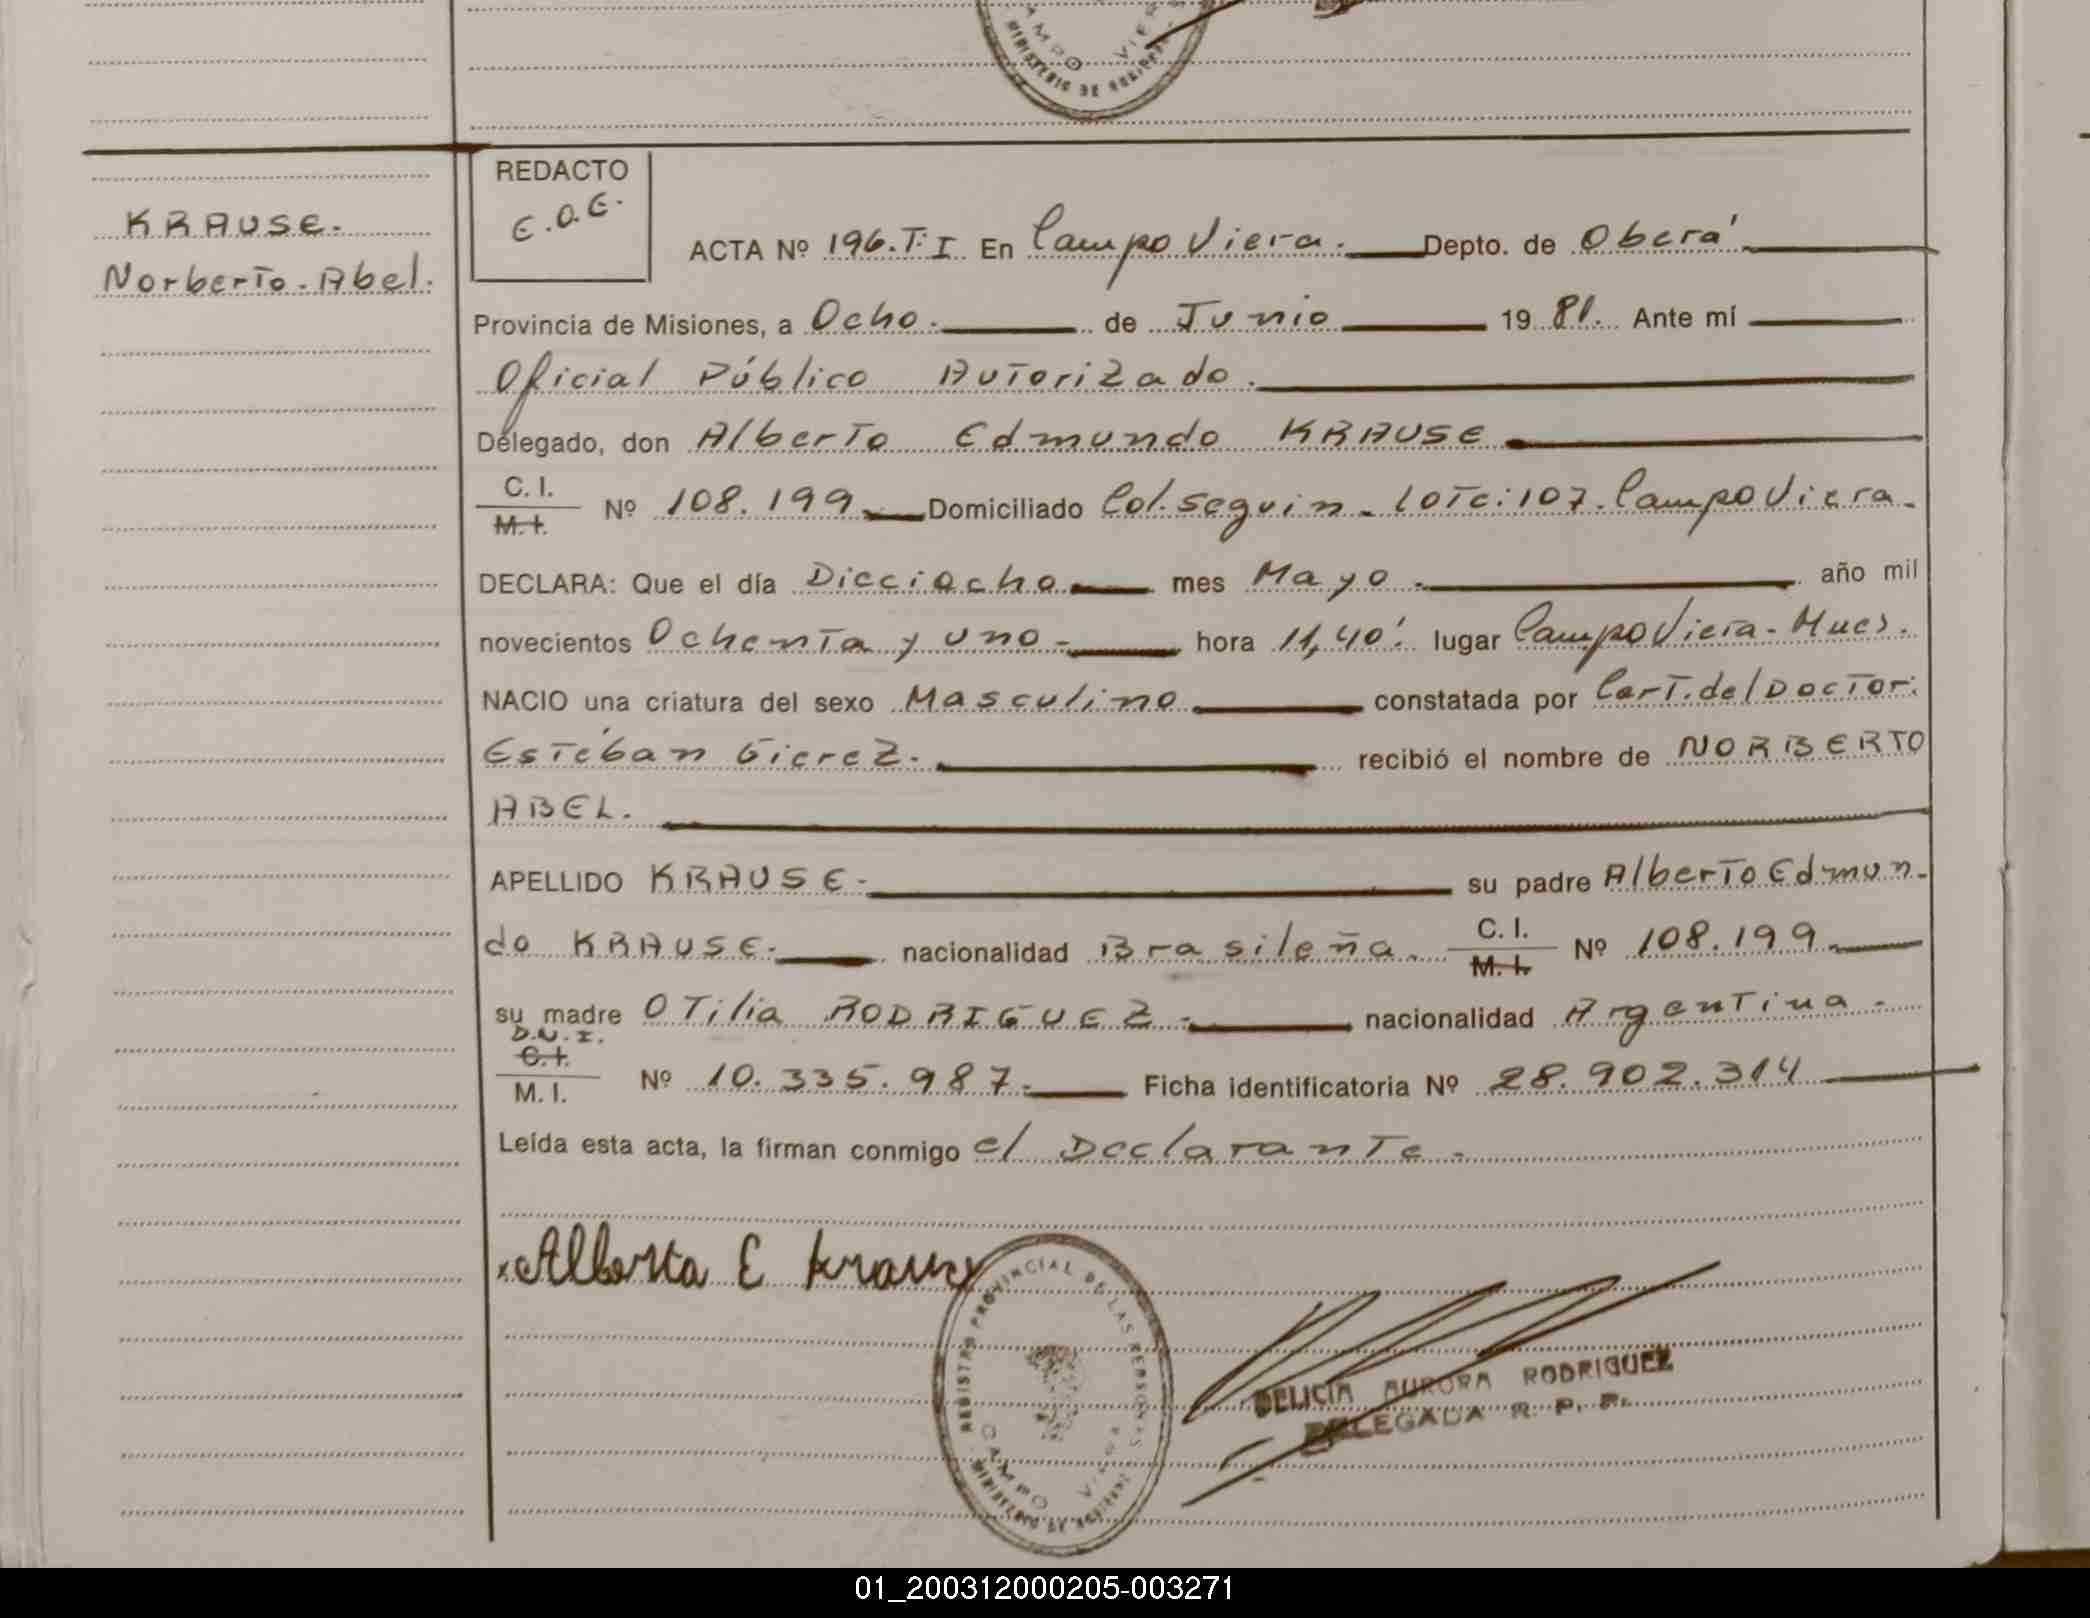 KRAUSE.
Norberto. Abel.
REDACTO
E.O.E.
ACTA Nº 196.T:I En Campo Viera. Depto. de Oberá
Provincia de Misiones, a Ocho. de Junio 19 81. Ante mí
Oficial Público Autorizado.
Delegado, don Alberto Edmundo KRAUSE
C. I.
M. I. Nº 108.199 Domiciliado Col. Seguin. Lote: 107. Campo Viera.
DECLARA: Que el día Dieciocho mes Mayo. año mil
novecientos Ochenta y uno. hora 11,40'. lugar Campo Viera. Mnes.
NACIO una criatura del sexo Masculino constatada por Cert. del Doctor:
Esteban Gierez. recibió el nombre de NORBERTO
ABEL.
APELLIDO KRAUSE. su padre Alberto Edmun-
do KRAUSE. nacionalidad Brasileña. C. I. M. I. Nº 108.199
su madre OTilia RODRIGUEZ. nacionalidad Argentina.
D.N.I.
C. I.
M. I. Nº 10.335.987. Ficha identificatoria Nº 28.902.314
Leída esta acta, la firman conmigo el Declarante.
Alberto E Krause
REGISTRO PROVINCIAL DE LAS PERSONAS
CAMPO VIERA
DELICIA AURORA RODRIGUEZ
DELEGADA R. P. P.
01_200312000205-003271